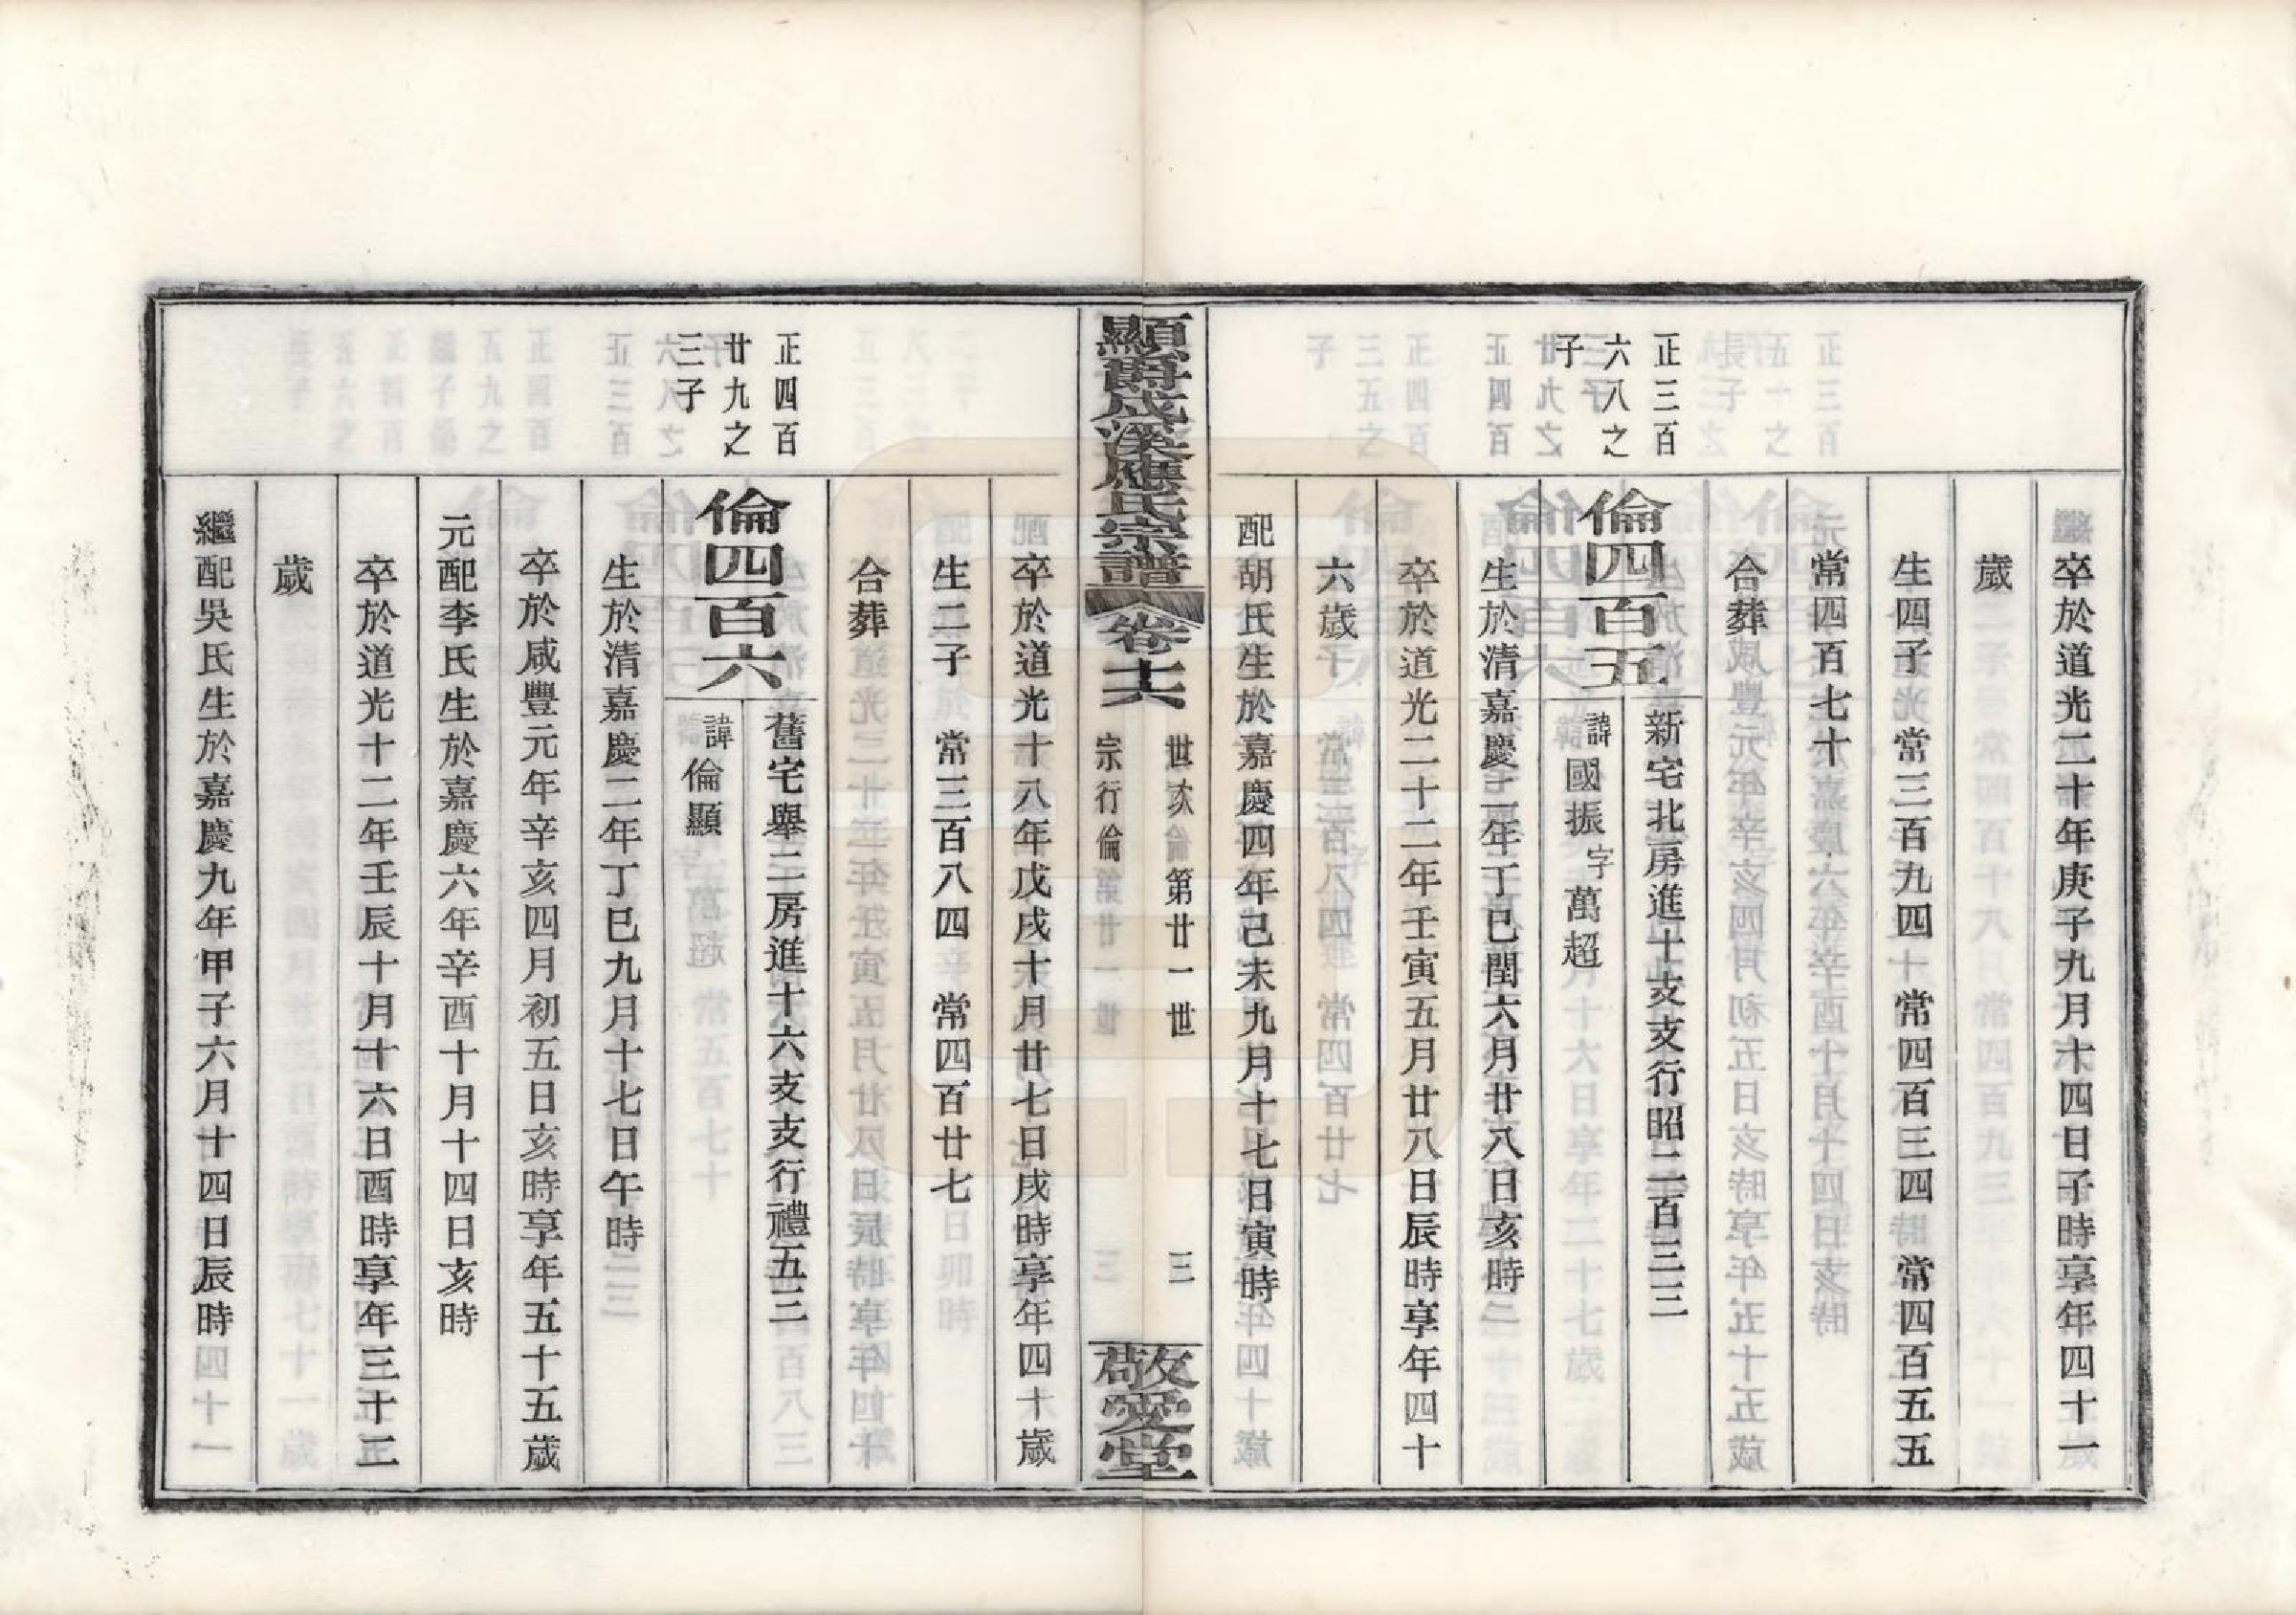 卒於道光二十年庚子九月十四日子時享年四十一
歲
生四子　常三百九四　常四百三四　常四百五五
常四百七十
合葬
正三百
六八之
子
倫四百五
新宅北房進十支支行昭二百三三
諱國振字萬超
生於清嘉慶二年丁巳閏六月廿八日亥時
卒於道光二十二年壬寅五月廿八日辰時享年四十
六歲
配胡氏生於嘉慶四年己未九月十七日寅時
顯爵成溪應氏宗譜
卷十六
世次第廿一世
宗行倫
三
敬愛堂
卒於道光十八年戊戌十月廿七日戌時享年四十歲
生二子　常三百八四　常四百廿七
合葬
正四百
廿九之
三子
倫四百六
舊宅舉二房進十六支支行禮五三
諱倫顯
生於清嘉慶二年丁巳九月十七日午時
卒於咸豐元年辛亥四月初五日亥時享年五十五歲
元配李氏生於嘉慶六年辛酉十月十四日亥時
卒於道光十二年壬辰十月十六日酉時享年三十二
歲
繼配吳氏生於嘉慶九年甲子六月十四日辰時